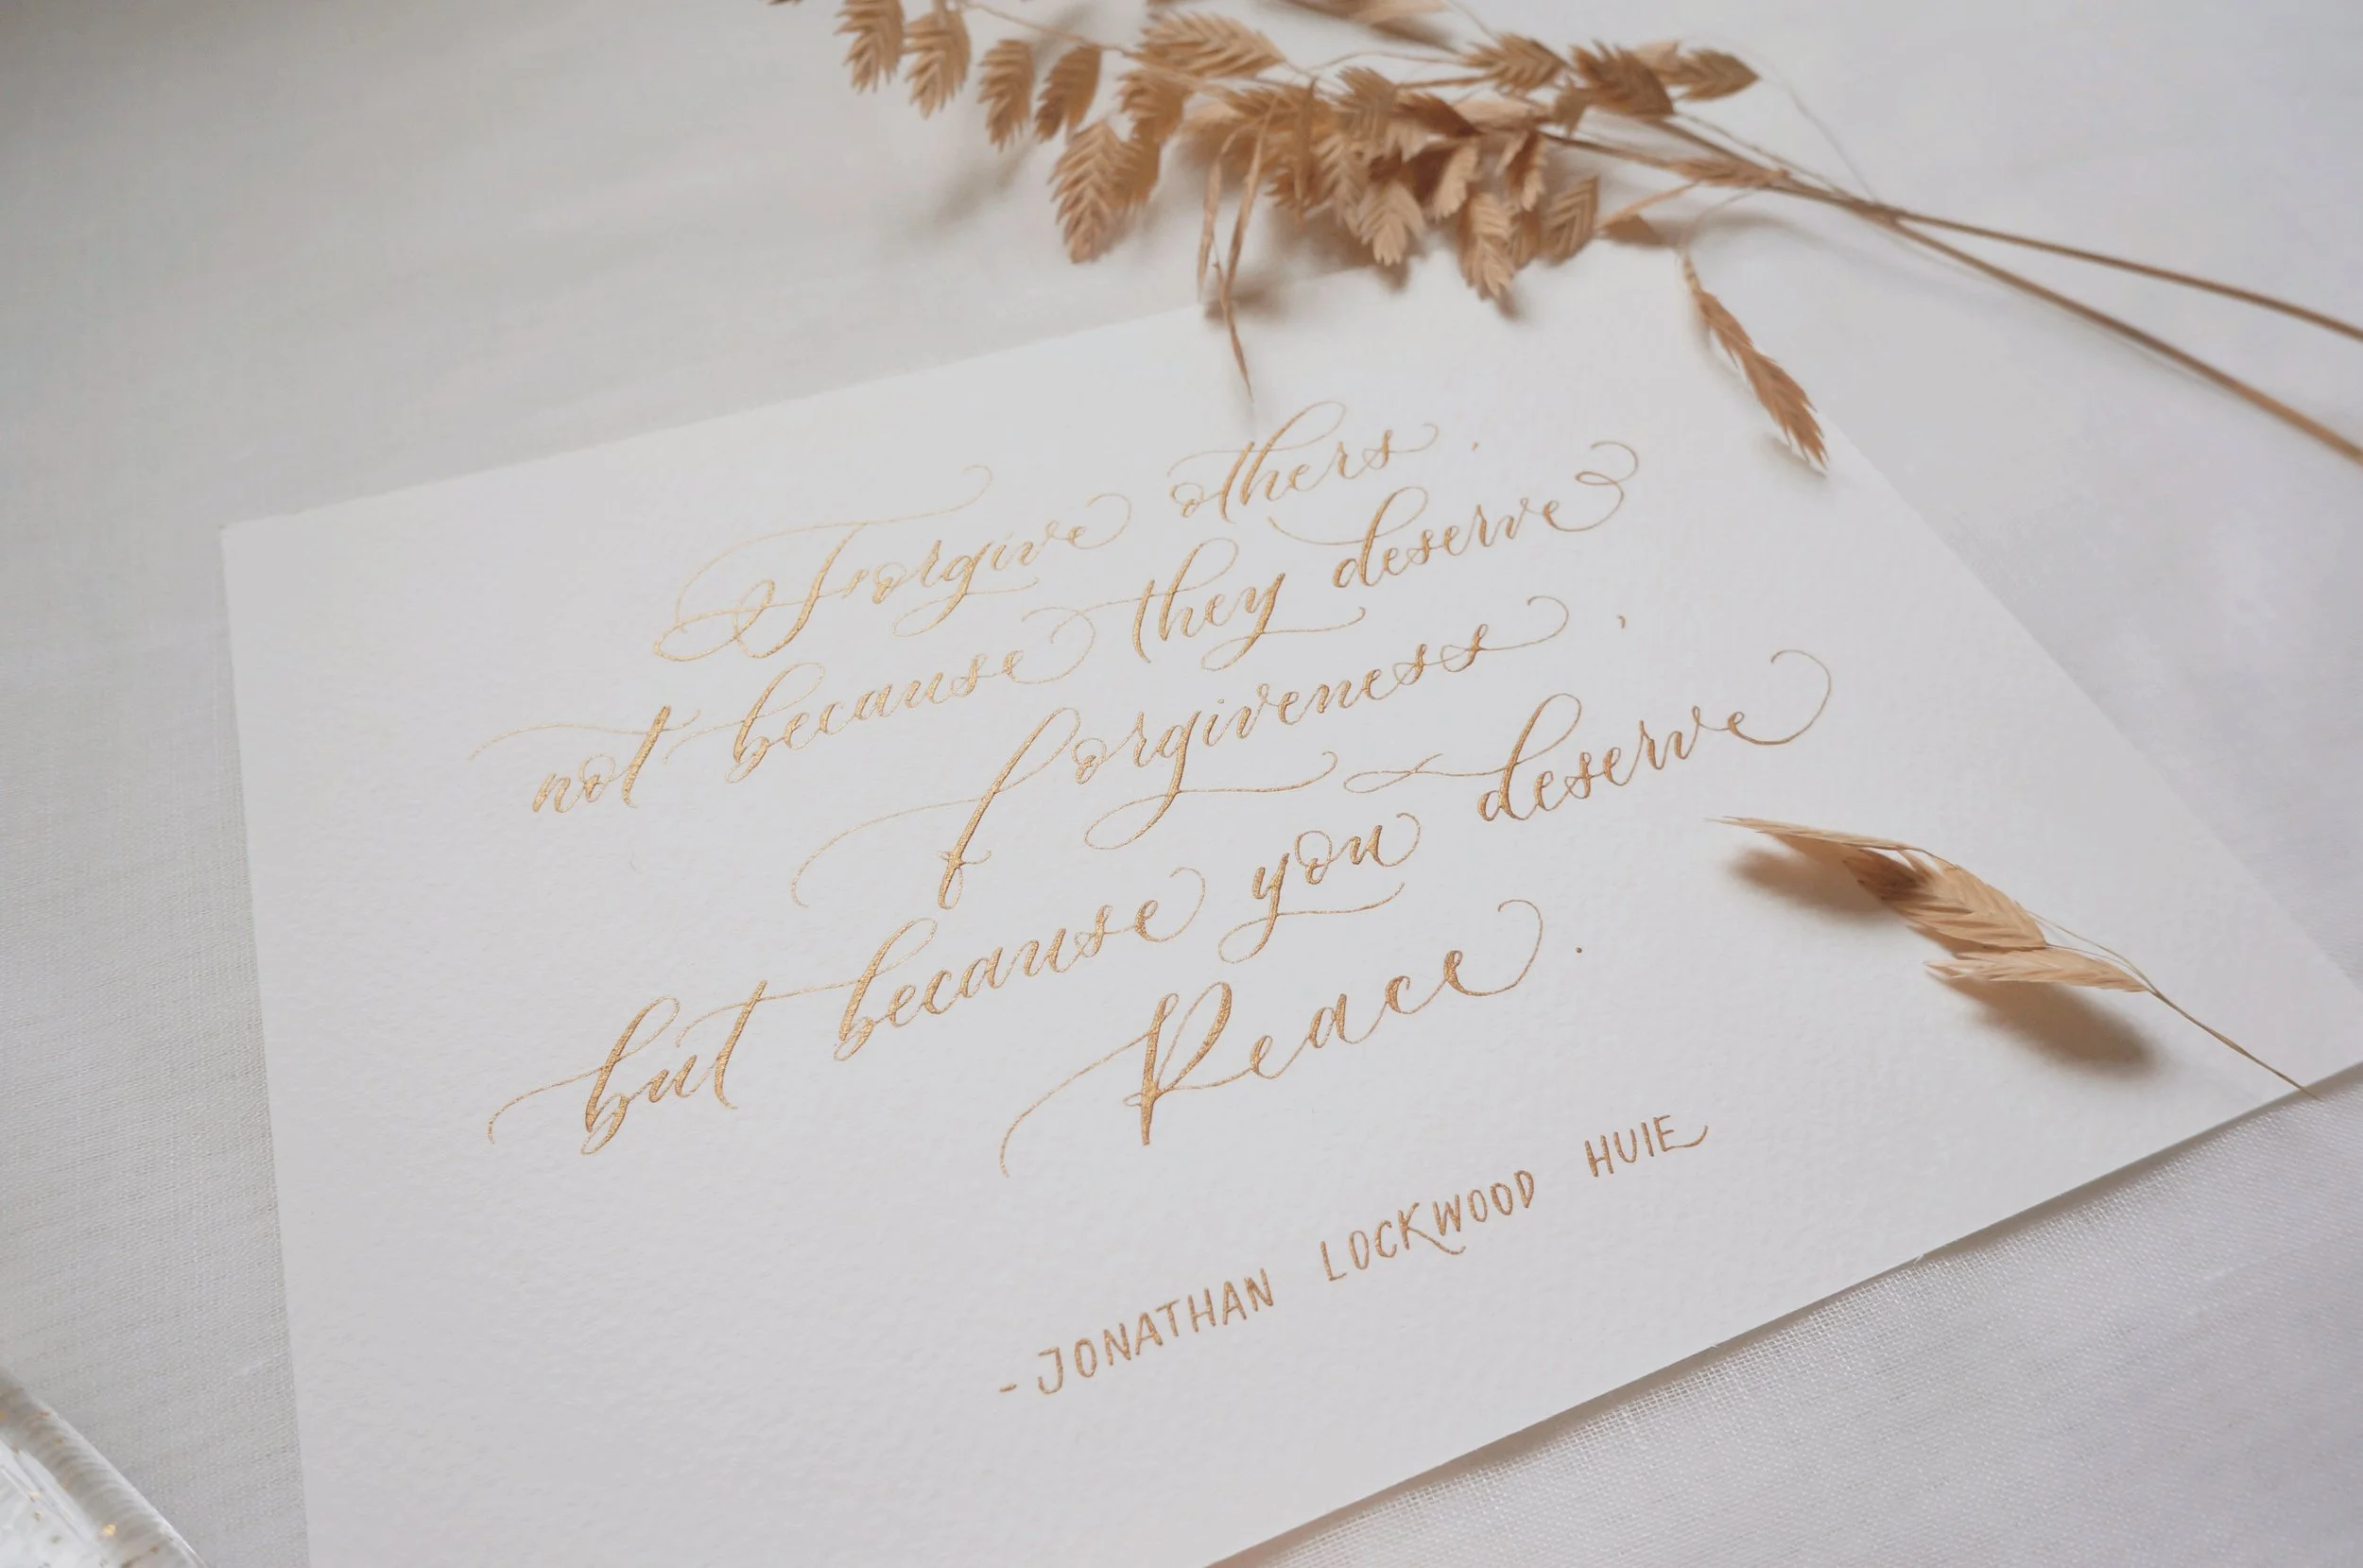 Forgive others,
not because they deserve
forgiveness,
but because you deserve
Peace.
- JONATHAN LOCKWOOD HUIE